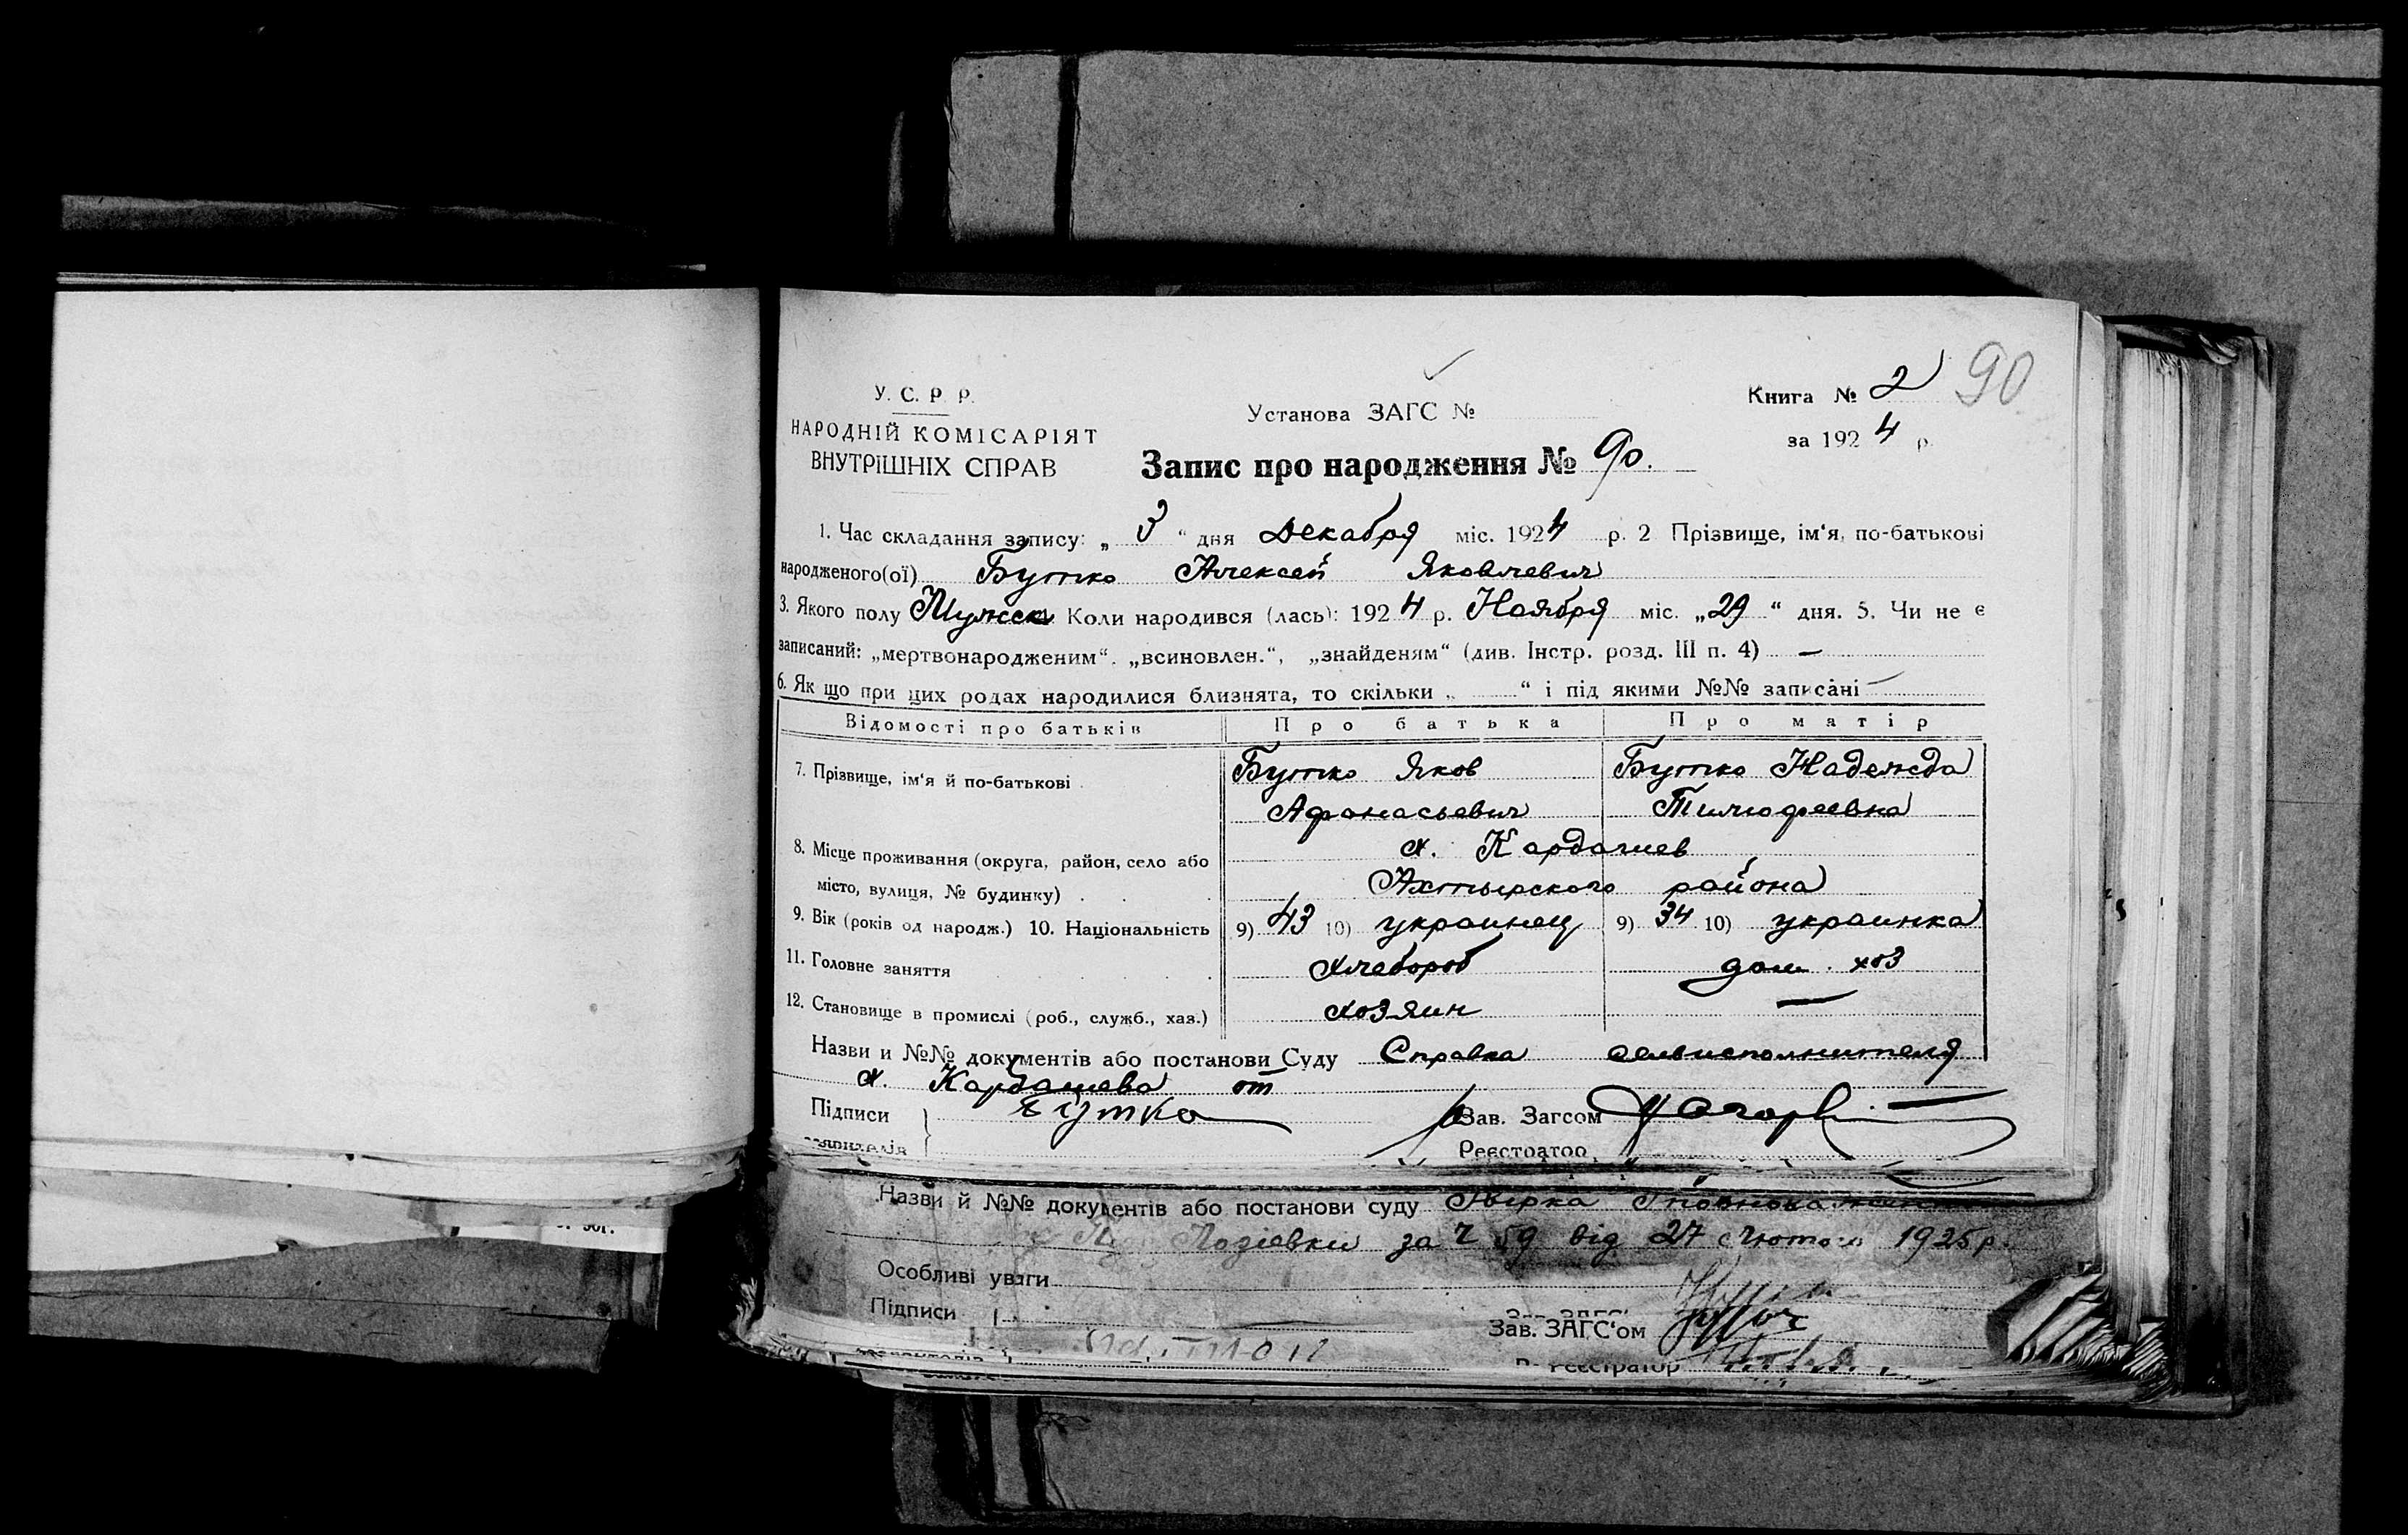 90
У. С. Р. Р.
НАРОДНІЙ КОМІСАРІЯТ
ВНУТРІШНІХ СПРАВ
Установа ЗАГС №
Книга № 2
за 1924 р.
Запис про народження № 90.
1. Час складання запису: „ 3 “ дня Декабря міс. 1924 р. 2 Прізвище, ім‘я, по-батькові
народженого(ої) Бутко Алексей Яковлевич
3. Якого полу Мужск Коли народився (лась): 1924 р. Ноября міс. „29“ дня. 5. Чи не є
записаний: „мертвонародженим“, „всиновлен.“, „знайденям“ (див. Інстр. розд. III п. 4) —
6. Як що при цих родах народилися близнята, то скільки „ “ і під якими №№ записані —
Відомості про батьків Про батька Про матір
7. Прізвище, ім‘я й по-батькові Бутко Яков Бутко Надежда
Афанасьевич Тимофеевна
8. Місце проживання (округа, район, село або х. Кардашев
місто, вулиця, № будинку) Ахтырского района
9. Вік (років од народж.) 10. Національність 9) 43 10) украинец 9) 34 10) украинка
11. Головне заняття хлебороб дом. хоз
12. Становище в промислі (роб., служб., хаз.) хозяин —
Назви и №№ документів або постанови Суду Справка сельисполнителя
х. Кардашева от
Підписи Бутко Зав. Загсом
заявителів Реєстратор
Назви й №№ документів або постанови суду
за Ч 59 від 27 лютого 1925 р.
Особливі уваги
Підписи
Зав. ЗАГС‘ом
Реєстратор